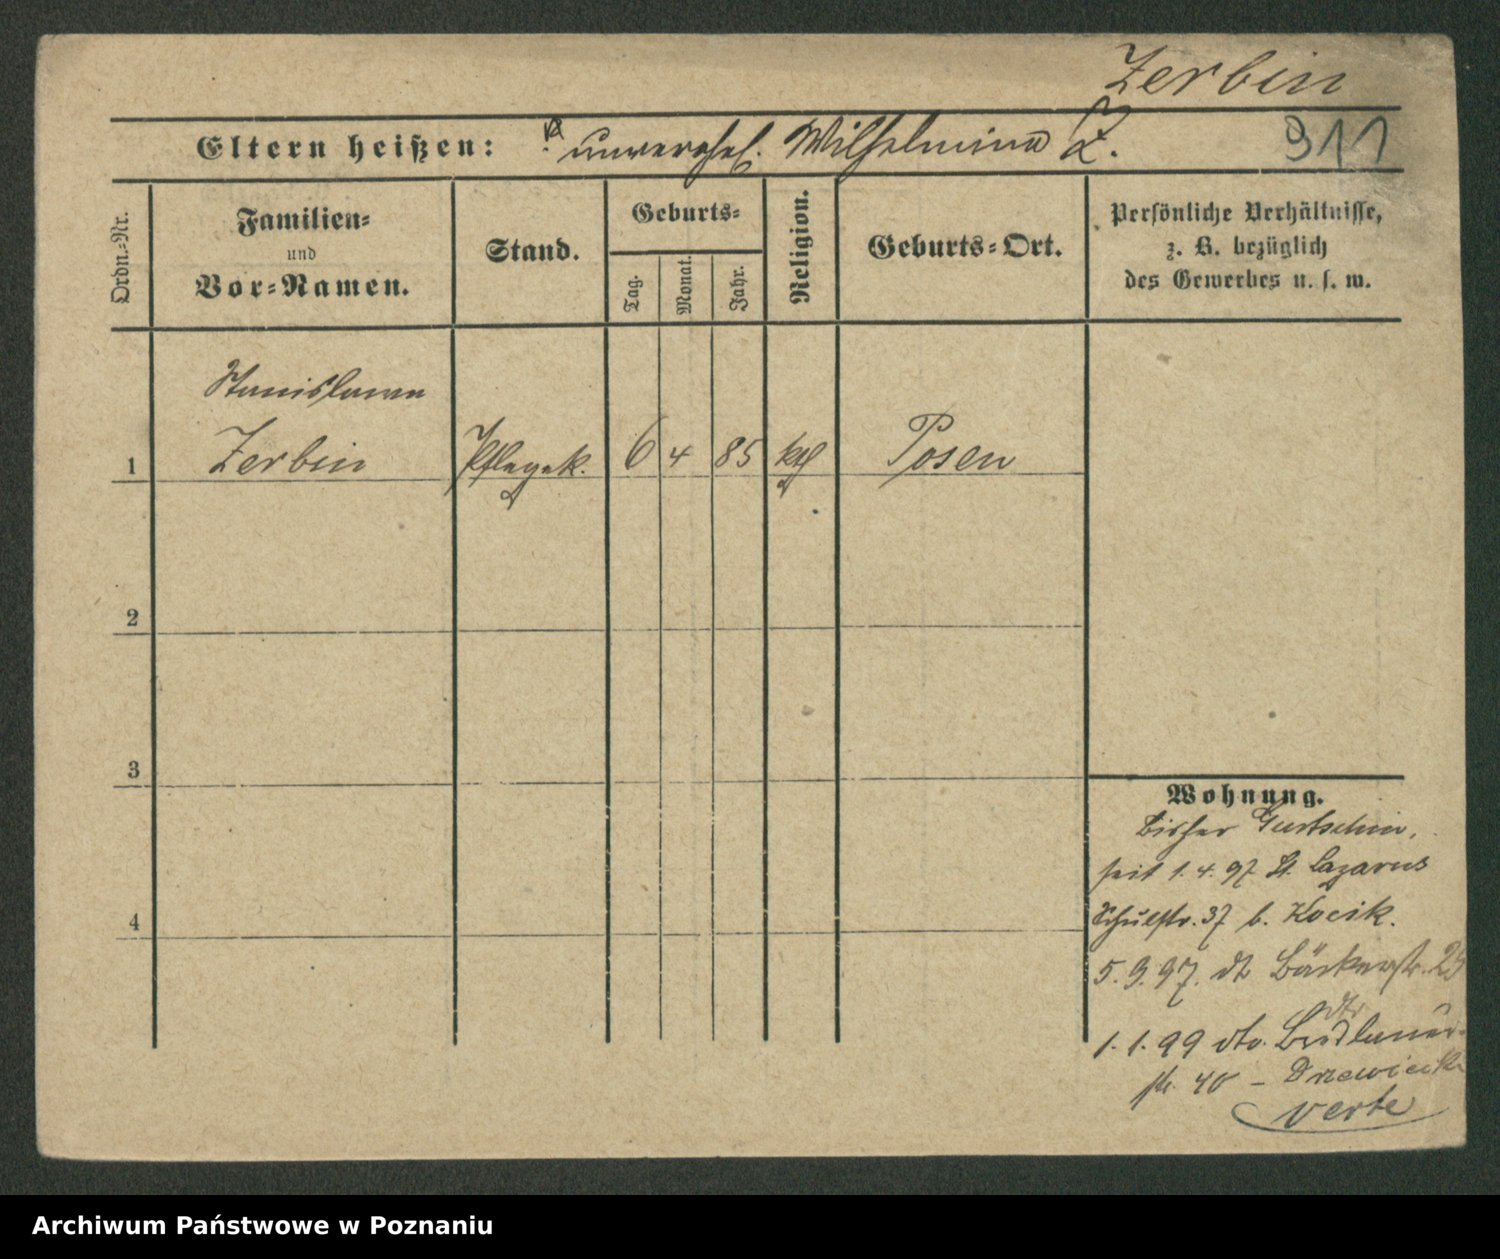 Zerbin
Eltern heißen: unverehel. Wilhelmina Z. 311
Ordn.-Nr.
Familien-
und
Vor-Namen.
Stand.
Geburts-
Tag.
Monat.
Jahr.
Religion.
Geburts-Ort.
Persönliche Verhältnisse,
z. B. bezüglich
des Gewerbes u. s. w.
Stanislawa
1 Zerbin Pflegek. 6 4 85 kth Posen
2
3
4
Wohnung.
bisher Gurtschin,
seit 1.4.97 St. Lazarus
Schulstr. 37 b. Kocik.
5.9.97. dto Bäckerstr. 25
1.1.99 dto.
str. 40 – Drzewiecki
verte
Archiwum Państwowe w Poznaniu